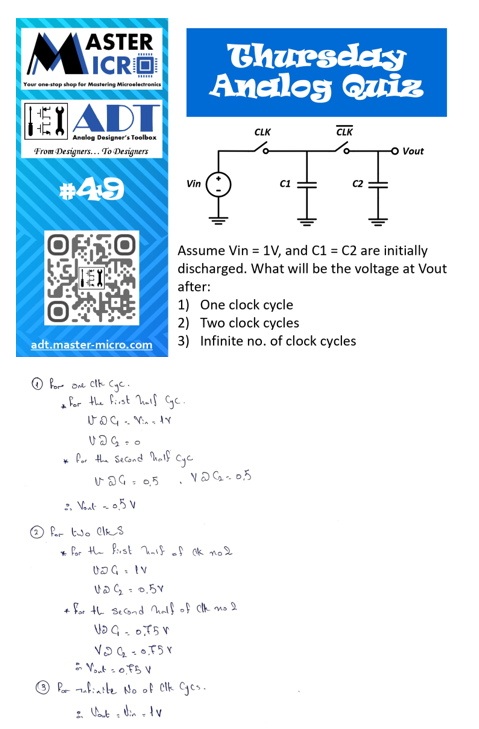 MASTER
MICRO
Your one-stop shop for Mastering Microelectronics
ADT
Analog Designer's Toolbox
From Designers... To Designers
#49
adt.master-micro.com
Thursday
Analog Quiz
CLK
CLK
Vout
Vin
+
-
C1
C2
Assume Vin = 1V, and C1 = C2 are initially
discharged. What will be the voltage at Vout
after:
1) One clock cycle
2) Two clock cycles
3) Infinite no. of clock cycles
① for one clk Cyc.
* for the first half Cyc.
V@C₁ = Vin = 1V
V@C₂ = 0
* for the second half Cyc
V@C₁ = 0.5 , V@C₂ = 0.5
∴ Vout = 0.5 V
② for two Clks
* for the first half of clk no 2
V@C₁ = 1V
V@C₂ = 0.5V
* for the second half of clk no 2
V@C₁ = 0.75 V
V@C₂ = 0.75 V
∴ Vout = 0.75 V
③ for infinite No of Clk Cycs.
∴ Vout = Vin = 1V